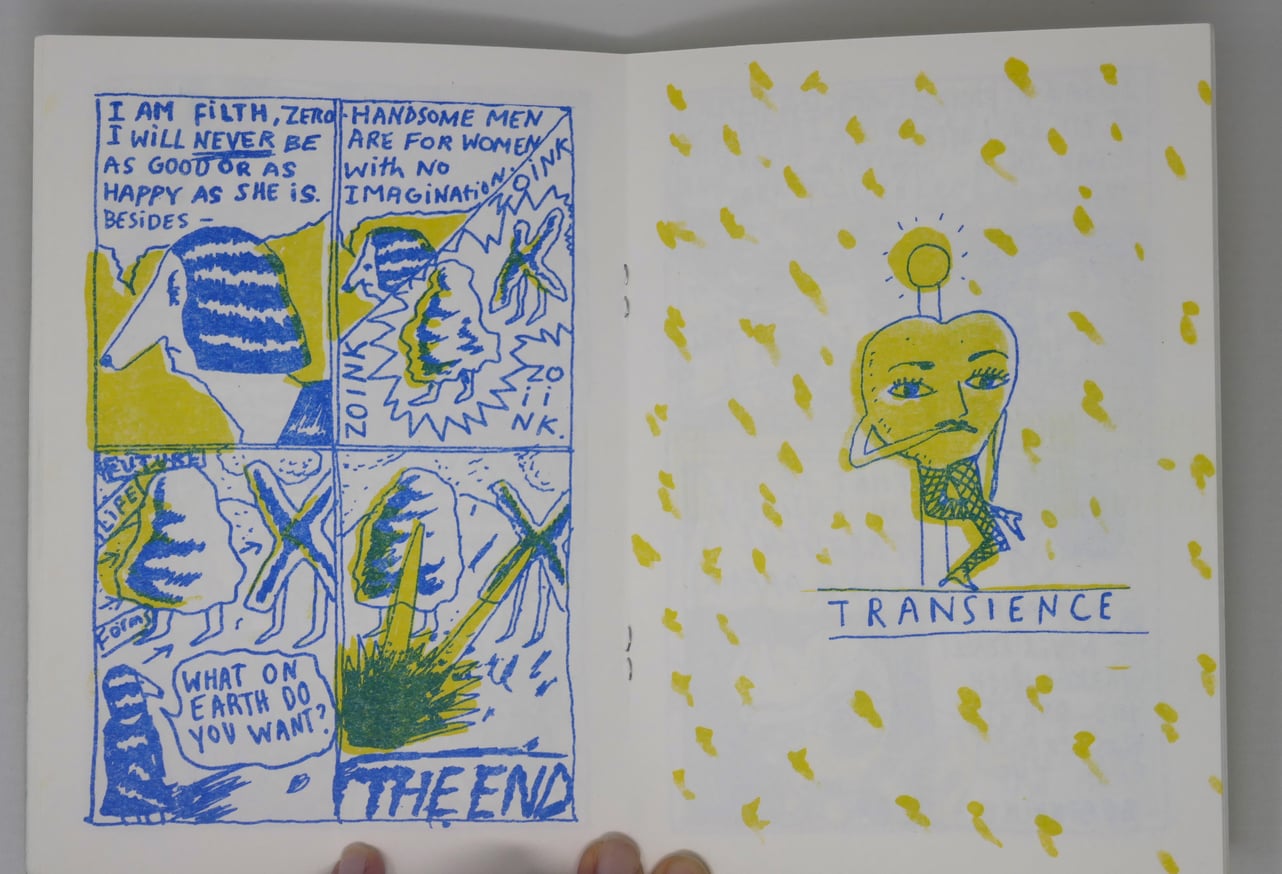 I AM FiLTH, ZERO
I WiLL NEVER BE
AS GOOD OR AS
HAPPY AS SHE iS.
BESiDES –
HANDSOME MEN
ARE FOR WOMEN
with NO
IMAGiNAtiON.
ZOINK
ZOINK
ZO
ii
NK.
FUTURE
LIFE
FORMS
WHAT ON
EARTH DO
YOU WANT?
THE END
TRANSIENCE